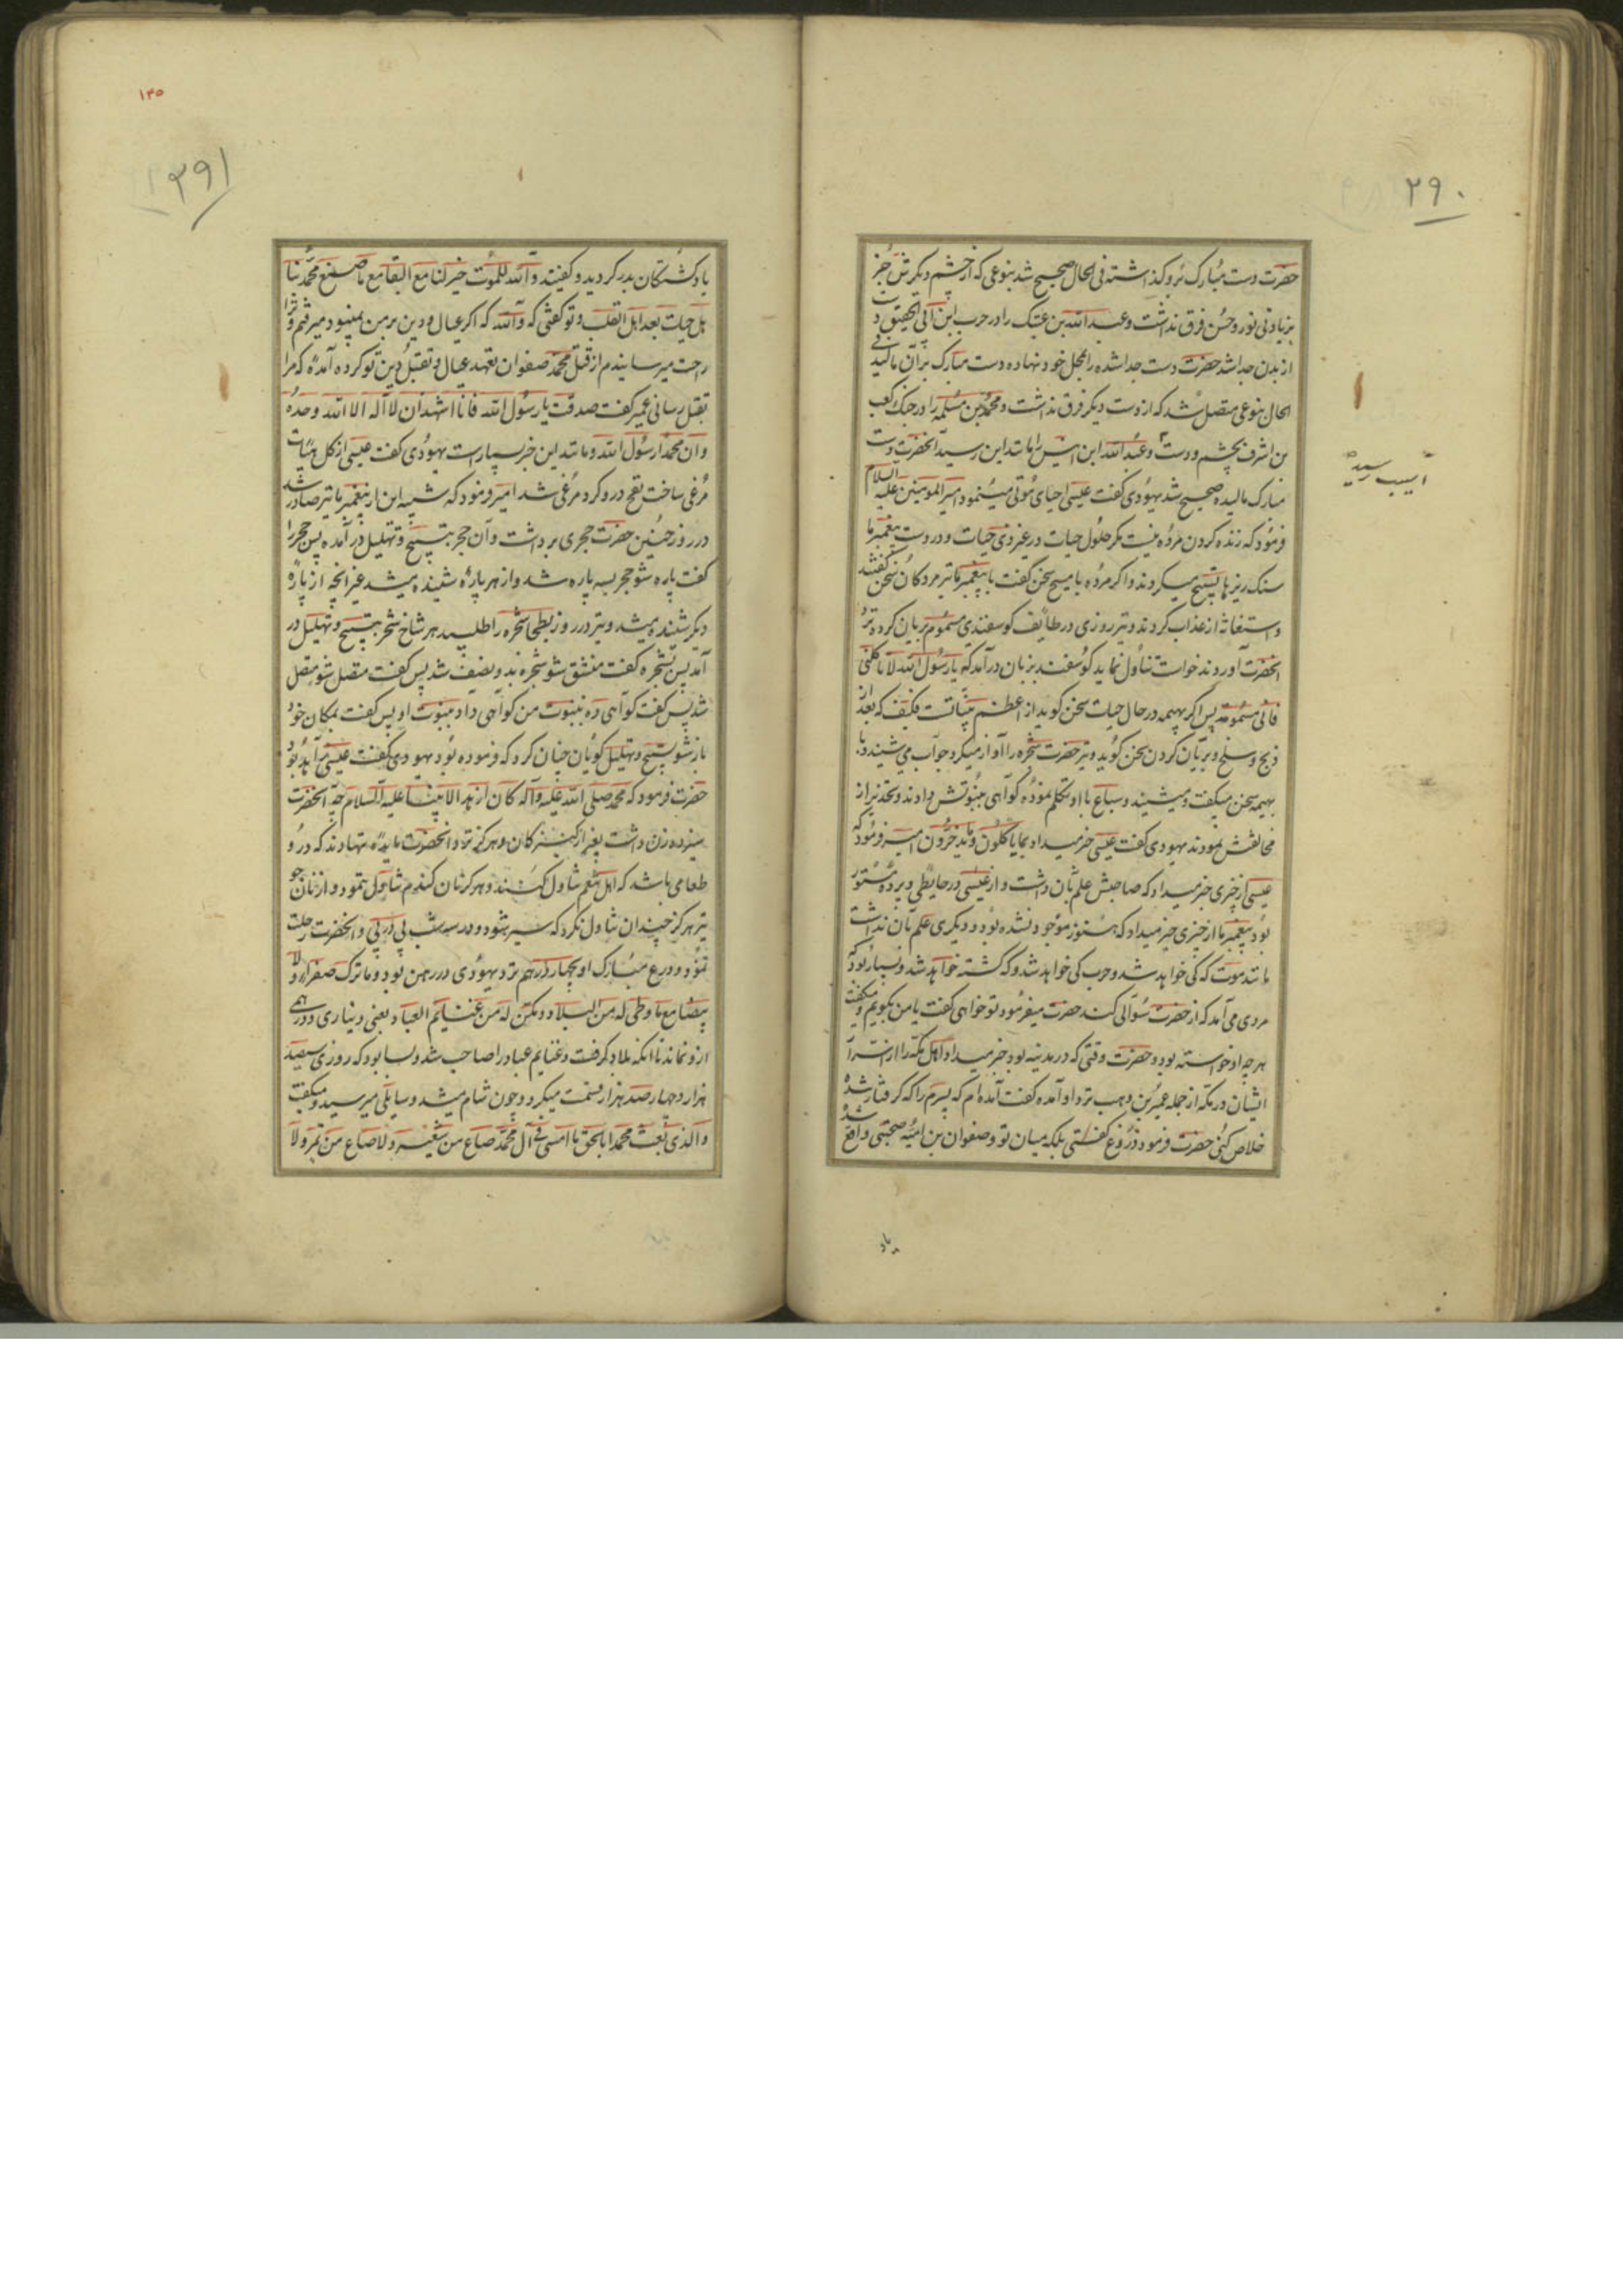 ۲۹۰
حضرت دست مبارک برو گذاشته فی الحال صحیح شد بنوعی که از چشم دیگرش جز
بزیادتی نور و حسن فرق نداشت و عبد الله بن عتیک را در حرب ابن ابی الحقیق دست
از بدن جدا شد حضرت دست جدا شده را بمحل خود نهاده دست مبارک بر آن مالید فی
الحال بنوعی متصل شد که از دست دیگر فرق نداشت و محمد بن مسلمه را در جنک کعب
بن اشرف بچشم و دست و عبد الله ابن انیس را مانند این رسید آنحضرت دست
آسیب رسیده
مبارک مالیده صحیح شد یهودی کفت عیسی احیای موتی مینمود امیر المومنین علیه السلام
فرمود که زنده کردن مرده نیست مکر حلول حیات در غیر ذی حیات و در دست پیغمبر ما
سنک ریزها تسبیح میکردند و اکر مرده با مسیح سخن کفت با پیغمبر ما نیز مردکان سخن کفتند
و استغاثه از عذاب کردند و نیز روزی در طایف کوسفندی مسموم بریان کرده نزد
آنحضرت آوردند خواست تناول نماید کوسفند بزبان درآمد که یا رسول الله لا تاکلنی
فانی مسمومة پس اکر بهیمه در حال حیات سخن کوید از اعظم بینات است فکیف که بعد از
ذبح و سلخ و بریان کردن سخن کوید و نیز حضرت شجره را آواز میکرد جواب می شنید و با
بهیمه سخن میکفت و میشنید و سباع با او تکلم نموده کواهی بنبوتش دادند و تحذیر از
مخالفتش نمودند یهودی کفت عیسی خبر میداد بما یاکلون و ما یدخرون امیر فرمود که
عیسی از چیزی خبر میداد که صاحبش علم بآن داشت و از عیسی در حایطی و پرده مستور
بود پیغمبر ما از چیزی خبر میداد که هنوز موجود نشده بود و دیکری علم بآن نداشت
مانند موت که کی خواهد شد و حرب کی خواهد شد و که کشته خواهد شد و بسیار بود که
مردی می آمد که از حضرت سؤالی کند حضرت میفرمود تو خواهی کفت یا من بکویم و میکفت
هر چه او خواسته بود و حضرت وقتی که در مدینه بود خبر میداد اهل مکه را از اسرار
ایشان در مکه از جمله عمیر بن وهب نزد او آمده کفت آمده ام که پسرم را که کرفتار شده
خلاص کنی حضرت فرمود دروغ کفتی بلکه میان تو و صفوان بن امیه صحبتی واقع شده
یاد
۱۴۵
۲۹۱
یاد کشتکان بدر کردید و کفتید و الله للموت خیر لنا مع البقا مع ما صنع محمد بنا
بل حیات بعد اهل القلیب و تو کفتی که و الله که اکر عیال و دین بر من نمیبود میرفتم و ترا
راحت میرسانیدم از قتل محمد صفوان تعهد عیال و تقبل دین تو کرده آمدۀ که مرا
بقتل رسانی عمیر کفت صدقت یا رسول الله فانا اشهد ان لا اله الا الله وحده
و ان محمدا رسول الله و مانند این خبر بسیار است یهودی کفت عیسی از کل بهیات
مرغی ساخت نفخ در و کرد مرغی شد امیر فرمود که شبیه این از پیغمبر ما نیز صادر شد
در روز حنین حضرت حجری برداشت و آن حجر بتسبیح و تهلیل درآمده پس حجر را
کفت پاره شو حجر بسه پاره شد و از هر پارۀ شنیده میشد غیر آنچه از پارۀ
دیکر شنیده میشد و نیز در روز بطحا شجره را طلبید هر شاخ شجر بتسبیح و تهلیل در
آمد پس بشجره کفت منشق شو شجره بدو نصف شد پس کفت متصل شو متصل
شد پس کفت کواهی ده بنبوت من کواهی داد بنبوت او پس کفت بمکان خود
باز شو بتسبیح و تهلیل کویان چنان کرد که فرموده بود یهودی کفت عیسی زاهد بود
حضرت فرمود که محمد صلی الله علیه و آله کان ازهد الانبیا علیه السلام چه آنحضرت
سیزده زن داشت بغیر از کنیزکان و هرکز نزد آنحضرت مایدۀ ننهادند که در و
طعامی باشد که اهل تنعم تناول کنند و هرکز نان کندم تناول ننمود و از نان جو
نیز هرکز چندان تناول نکرد که سیر شود و در سه شب پی در پی و آنحضرت رحلت
نمود و درع مبارک او بچهار درهم نزد یهودی در رهن بود و ما ترک صفراء و لا
بیضا مع ما وطی له من البلاد و مکن له من غنایم العباد یعنی دیناری و درهمی
ازو نماند با آنکه بلاد کرفت و غنایم عباد را صاحب شد و بسا بود که روزی سیصد
هزار و چهار صد هزار قسمت میکرد و چون شام میشد و سایلی میرسید و میکفت
و الذی بعث محمدا بالحق ما امسی فی آل محمد صاع من شعیر و لا صاع من تمر و لا